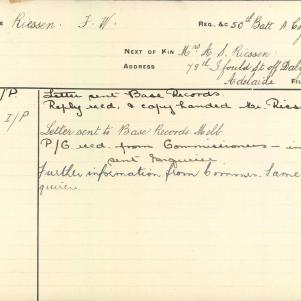 E Riessen. F. W. REG. &c 50th Batt A Co
NEXT OF KIN Mrs A. D. Riessen
ADDRESS 78th
Adelaide FIL
I/P Letter sent Base Records
Reply recd. & copy handed Mr. Riess
I/P
Letter sent to Base Records Melb
P/C recd. from Commissioners – in
sent Enquirer
Further information from Commrs. Same
quirer